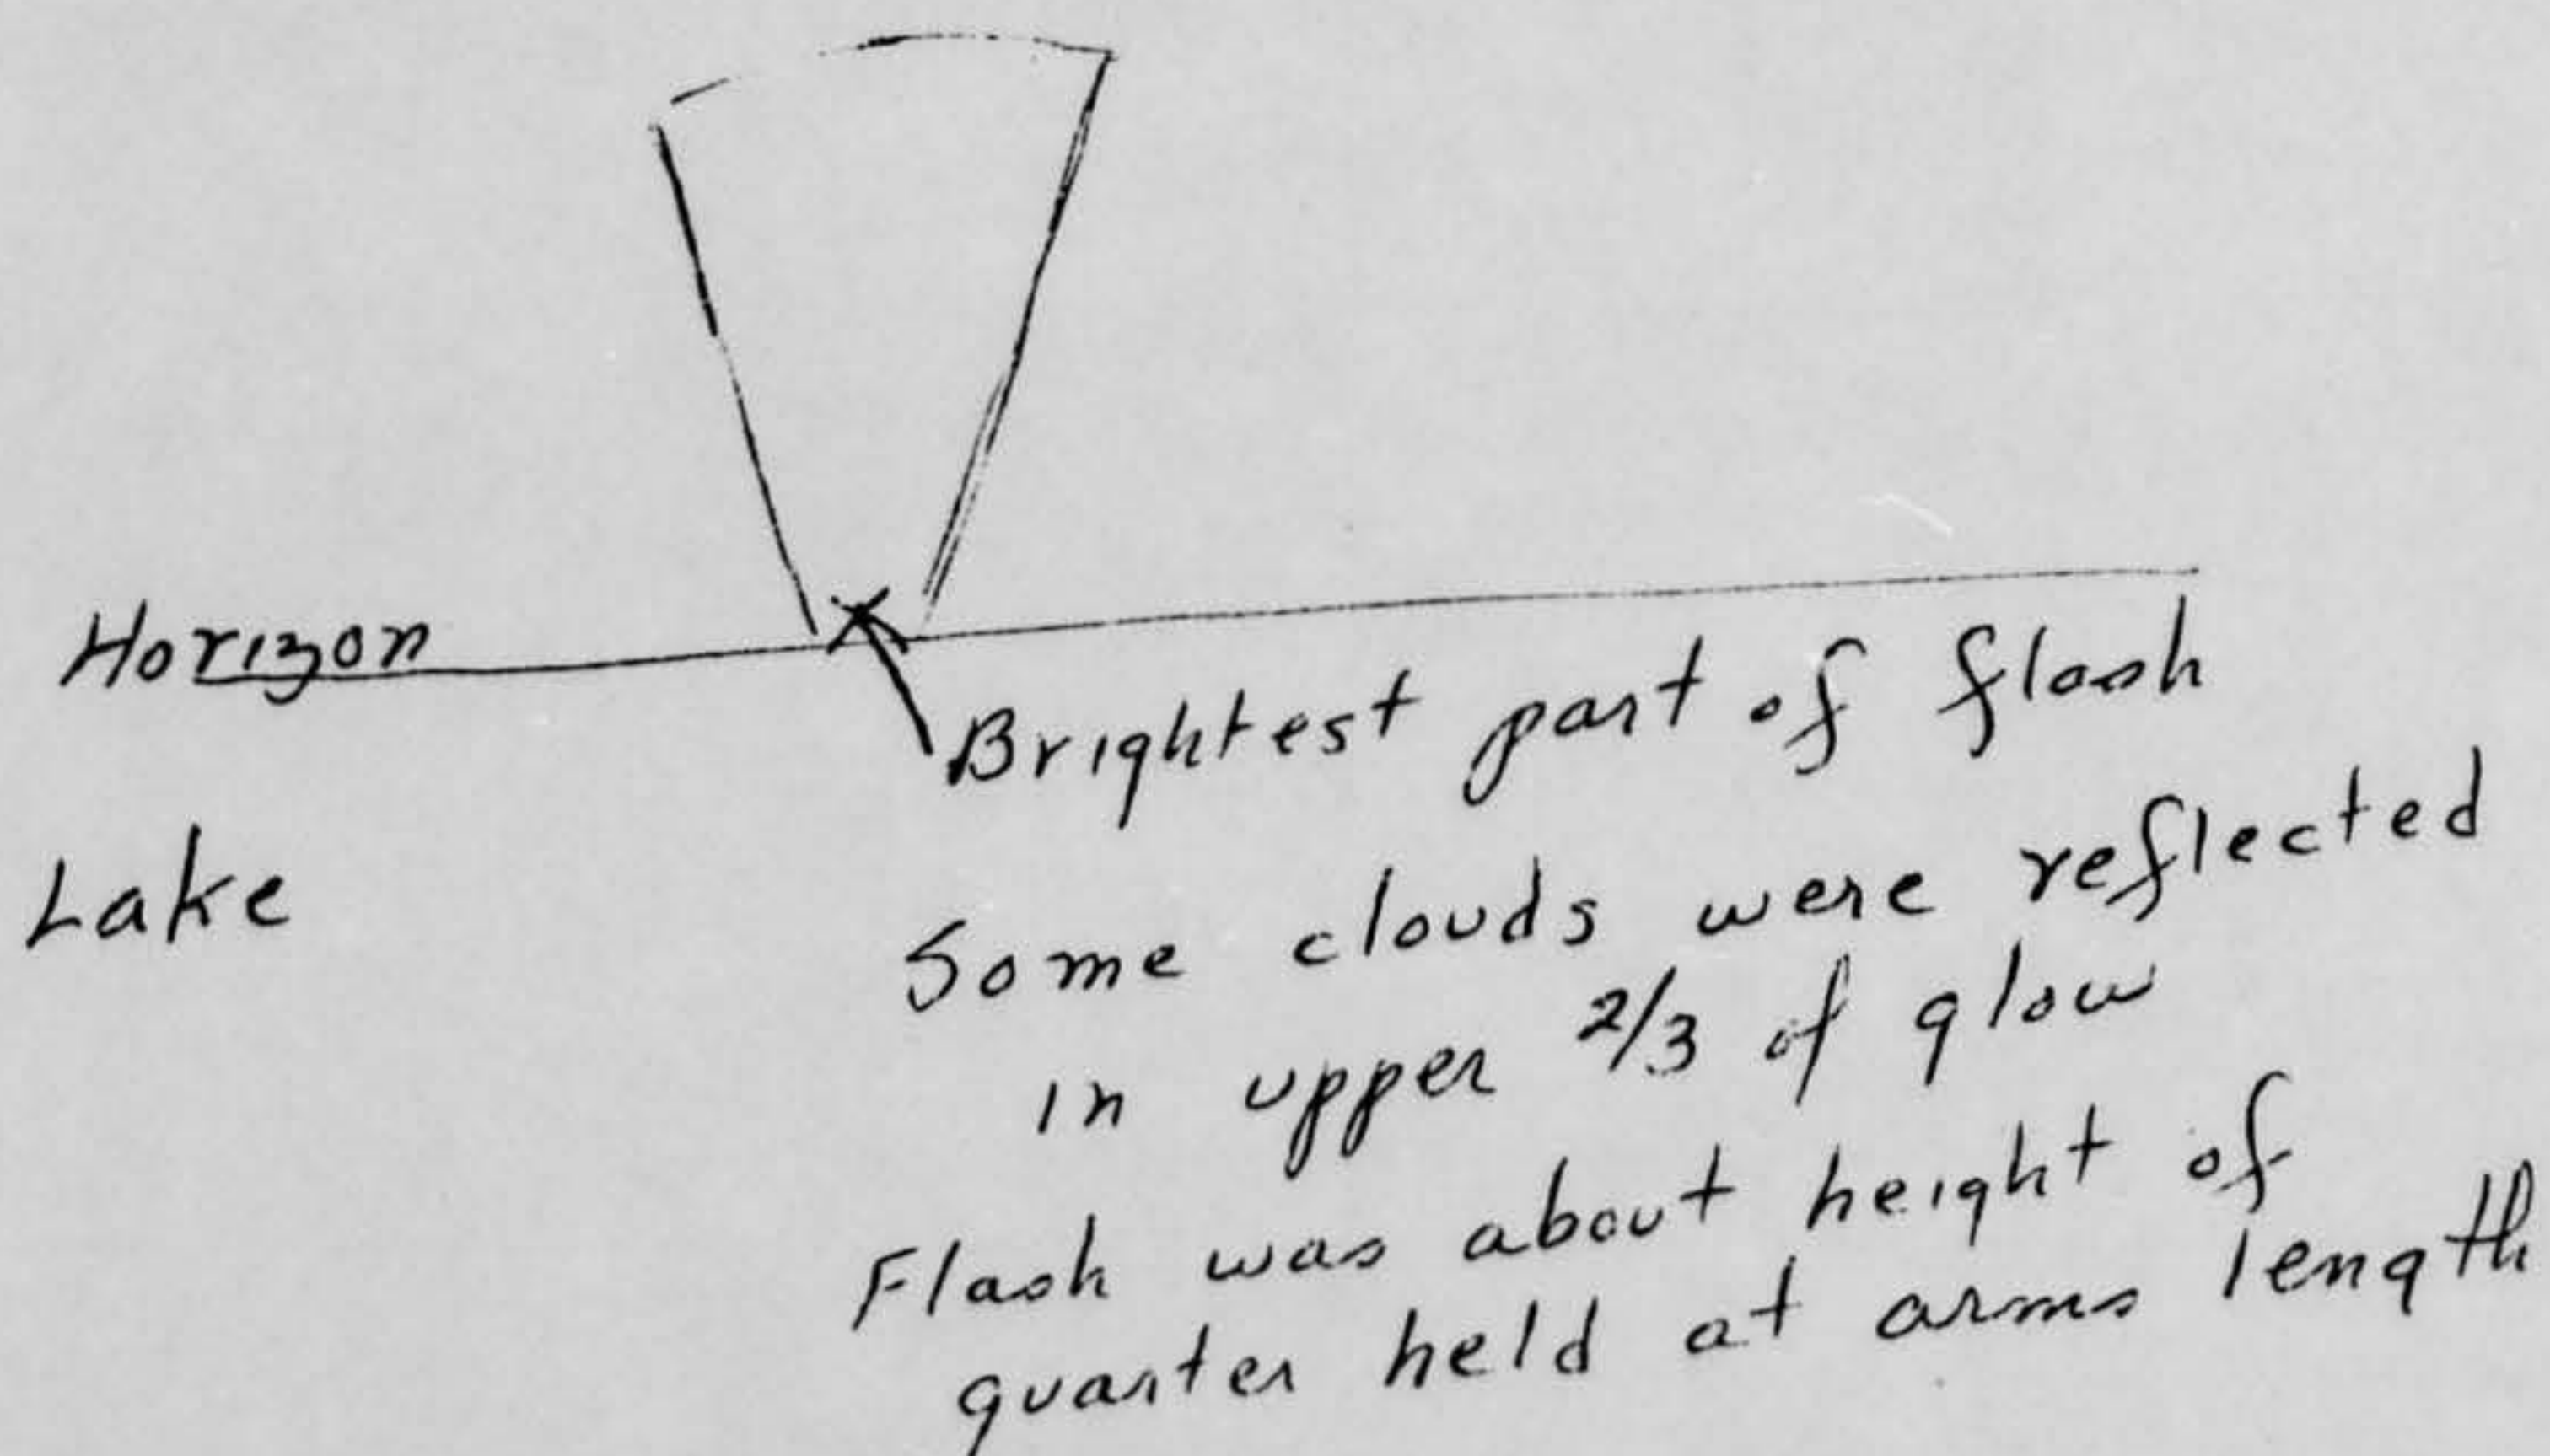 Horizon
Brightest part of flash
Lake
Some clouds were reflected
in upper 2/3 of glow
Flash was about height of
quarter held at arms length